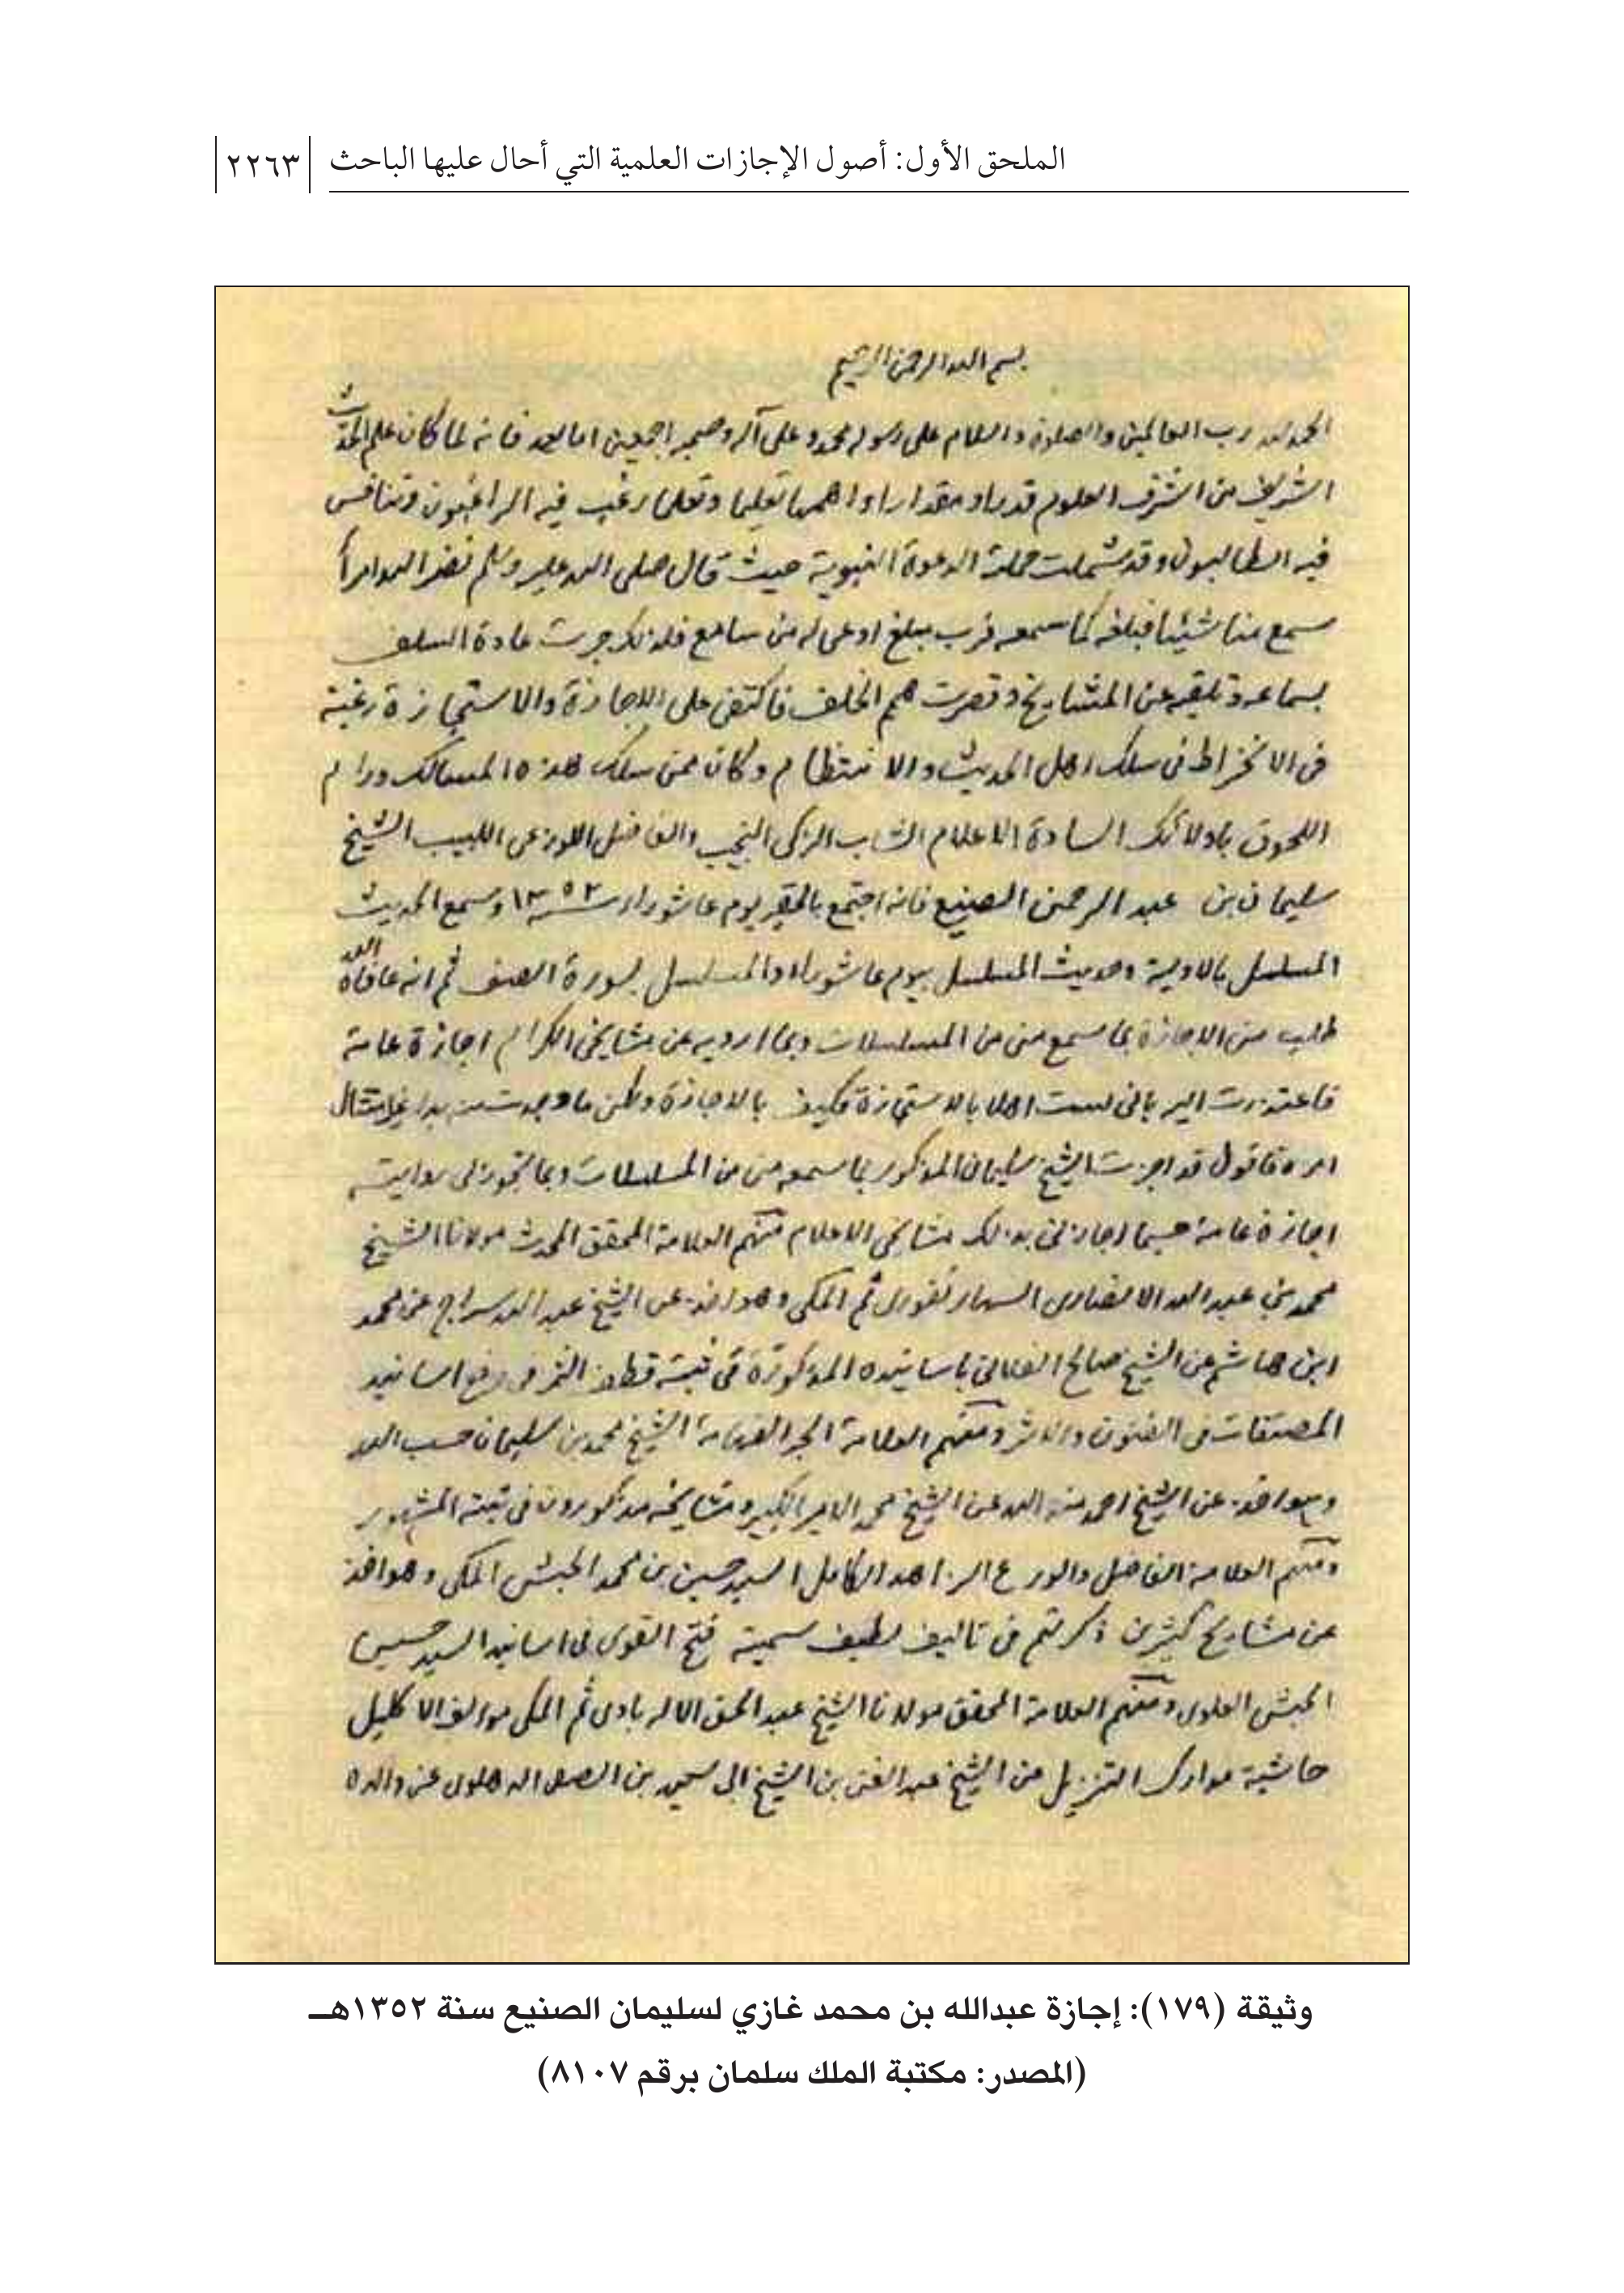 الملحق الأول: أصول الإجازات العلمية التي أحال عليها الباحث ٢٢٦٣
بسم الله الرحمن الرحيم
الحمد لله رب العالمين والصلوة والسلام على رسوله محمد وعلى آله وصحبه اجمعين اما بعد فانه لما كان علم الحديث
الشريف من اشرف العلوم قدرا ومقدارا واهمها تعليما وتعلما رغب فيه الراغبون وتنافس
فيه الطالبون وقد شملت حملته الدعوة النبوية حيث قال صلى الله عليه وسلم نضر الله امرأ
سمع منا شيئا فبلغه كما سمعه فرب مبلغ اوعى له من سامع فلذلك جرت عادة السلف
بسماعه وتلقيه عن المشايخ وقصرت همم الخلف فاكتفى على الاجازة والاستجازة رغبة
فى الانخراط فى سلك اهل الحديث والانتظام وكان ممن سلك هذه المسالك ورام
اللحوق باولائك السادة الاعلام الشاب الزكى النجيب والفاضل اللوذعى اللبيب الشيخ
سليمان بن عبد الرحمن الصنيع فانه اجتمع بالحقير يوم عاشوراء سنة ١٣٥٢ وسمع الحديث
المسلسل بالاولية وحديث المسلسل بيوم عاشوراء والمسلسل بسورة الصف ثم انه عافاه الله
طلب منى الاجازة بما سمع منى من المسلسلات وبما ارويه عن مشايخى الكرام اجازة عامة
فاعتذرت اليه بانى لست اهلا بالاستجازة فكيف بالاجازة ولكن ما وجدت منه بدا غير امتثال
امره فاقول قد اجزت الشيخ سليمان المذكور بما سمعه منى من المسلسلات وبما تجوز لى روايته
اجازة عامة حسبما اجازنى بذلك مشايخى الاعلام منهم العلامة المحقق المحدث مولانا الشيخ
محمد بن عبد الله الانصارى السهارنفورى ثم المكى وهو اخذ عن الشيخ عبد الله سراج عن محمد
ابن هاشم عن الشيخ صالح الفلانى باسانيده المذكورة فى ثبته قطف الثمر فى رفع اسانيد
المصنفات فى الفنون والاثر ومنهم العلامة الحبر الفهامة الشيخ محمد بن سليمان حسب الله
وهو اخذ عن الشيخ احمد منة الله عن الشيخ محمد الامير الكبير ومشايخه مذكورون فى ثبته المشهور
ومنهم العلامة الفاضل والورع الزاهد الكامل السيد حسين بن محمد الحبشى المكى وهو اخذ
عن مشايخ كثيرين ذكرتهم فى تاليف لطيف سميته فتح القوى فى اسانيد السيد حسين
الحبشى العلوى ومنهم العلامة المحقق مولانا الشيخ عبد الحق الاله بادى ثم المكى مؤلف الاكليل
حاشية مدارك التنزيل عن الشيخ عبد الغنى بن الشيخ ابى سعيد بن الصفى الدهلوى عن والده
وثيقة (١٧٩): إجازة عبدالله بن محمد غازي لسليمان الصنيع سنة ١٣٥٢هـ
(المصدر: مكتبة الملك سلمان برقم ٨١٠٧)